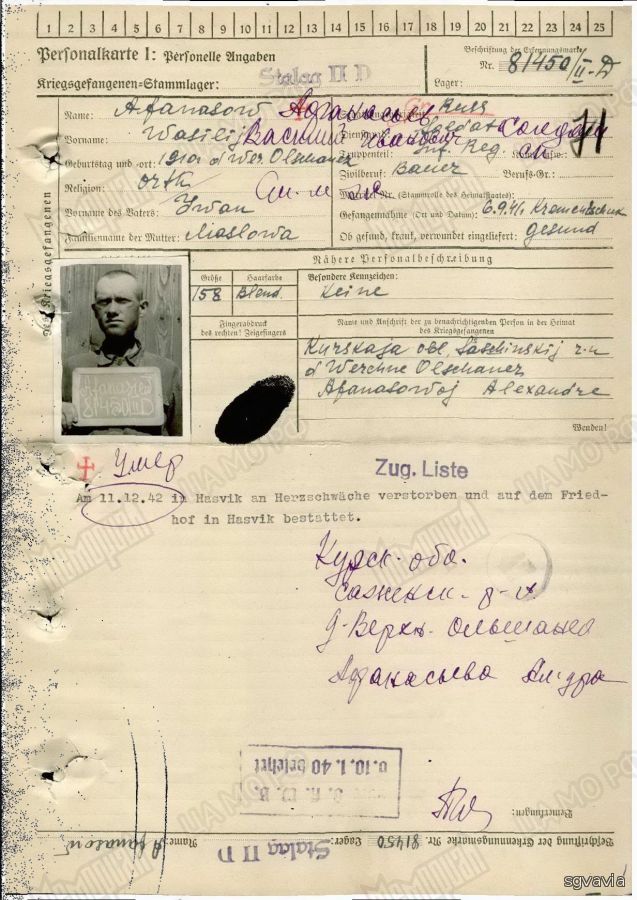 1 2 3 4 5 6 7 8 9 10 11 12 13 14 15 16 17 18 19 20 21 22 23 24 25
Personalkarte I: Personelle Angaben
Beschriftung der Erkennungsmarke
Nr. 81450/II-D
Kriegsgefangenen-Stammlager: Stalag II D
Lager:
des Kriegsgefangenen
Name: Afanasow Афанасьев
Russ
Vorname: Wasilij Василий Иванович
Soldat Солдат
Geburtstag und -ort: d Wer. Olschanez
Inf. Reg.
Religion: orth
Zivilberuf: Bauer Berufs-Gr.:
Vorname des Vaters: Iwan
Matrikel Nr. (Stammrolle des Heimatstaates)
Gefangennahme (Ort und Datum): 6.9.41, Krementschuk
Familienname der Mutter: Maslowa
Ob gesund, krank, verwundet eingeliefert: gesund
Nähere Personalbeschreibung
Größe Haarfarbe
Besondere Kennzeichen:
158 Blond.
Keine
Fingerabdruck
des rechten! Zeigefingers
Name und Anschrift der zu benachrichtigenden Person in der Heimat
des Kriegsgefangenen
Kurskaja obl.
d Werchne Olschanez
Afanasowoj Alexandre
Wenden!
Умер
Zug. Liste
Am 11.12.42 in Hasvik an Herzschwäche verstorben und auf dem Fried-
hof in Hasvik bestattet.
Курск. обл.
Саженск. р-н
д. Верхн. Ольшанец
Афанасьева Ал-дра
v. 10.1.40 belehrt
Bemerkungen:
Beschriftung der Erkennungsmarke Nr. 81450 Lager: Stalag II D Name: Afanasow
ЦАМО РФ
sgvavia